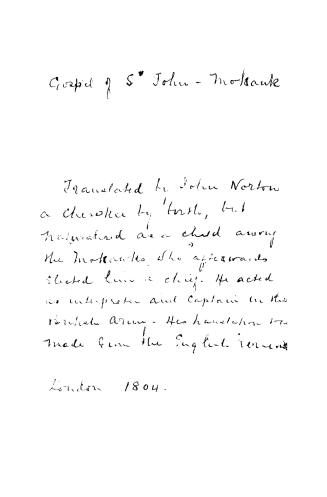 Gospel of St John - Mohawk
Translated by John Norton
a Cherokee by birth, but
naturalised as a child among
the Mohawks, who afterwards
elected him a chief. He acted
as interpreter and Captain in the
British Army. His translation was
made from the English version
London 1804.